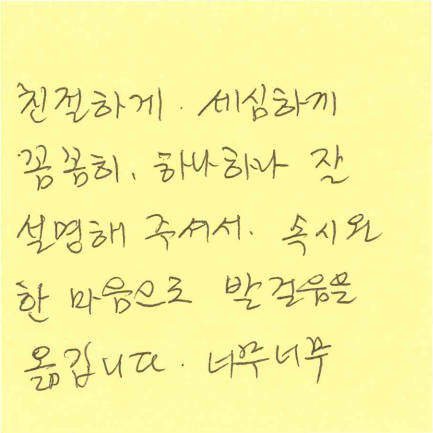 친절하게. 세심하게
꼼꼼히, 하나하나 잘
설명해 주셔서. 속시원
한 마음으로 발걸음을
옮깁니다. 너무너무